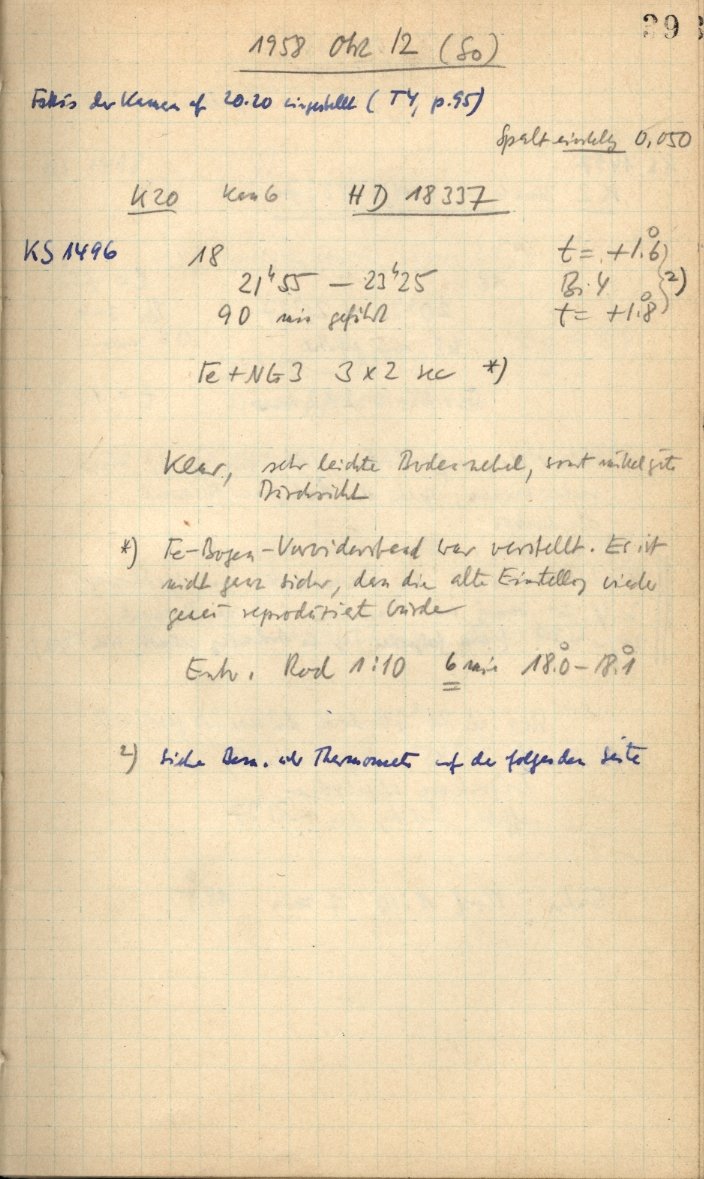 393
1958 Okt 12 (So)
Fokus der Kamera auf 20.20 eingestellt (T4, p.95)
Spalteinstellg 0,050
K20 Kam 6 HD 18337
KS 1496 18 t = +1.°6
21ʰ55 – 23ʰ25 Bi. 4 } 2)
90 min geführt t = +1.°8
Fe + NG3 3 x 2 sec *)
Klar, sehr leichte Bodennebel, sonst mittelgute
Durchsicht
*) Fe-Bogen-Vorwiderstand war verstellt. Es ist
nicht ganz sicher, dass die alte Einstellg wieder
genau reproduziert wurde
Entw. Rod 1:10 6 min 18.°0 – 18.°1
2) Siehe Bem. üb. Thermometer auf der folgenden Seite